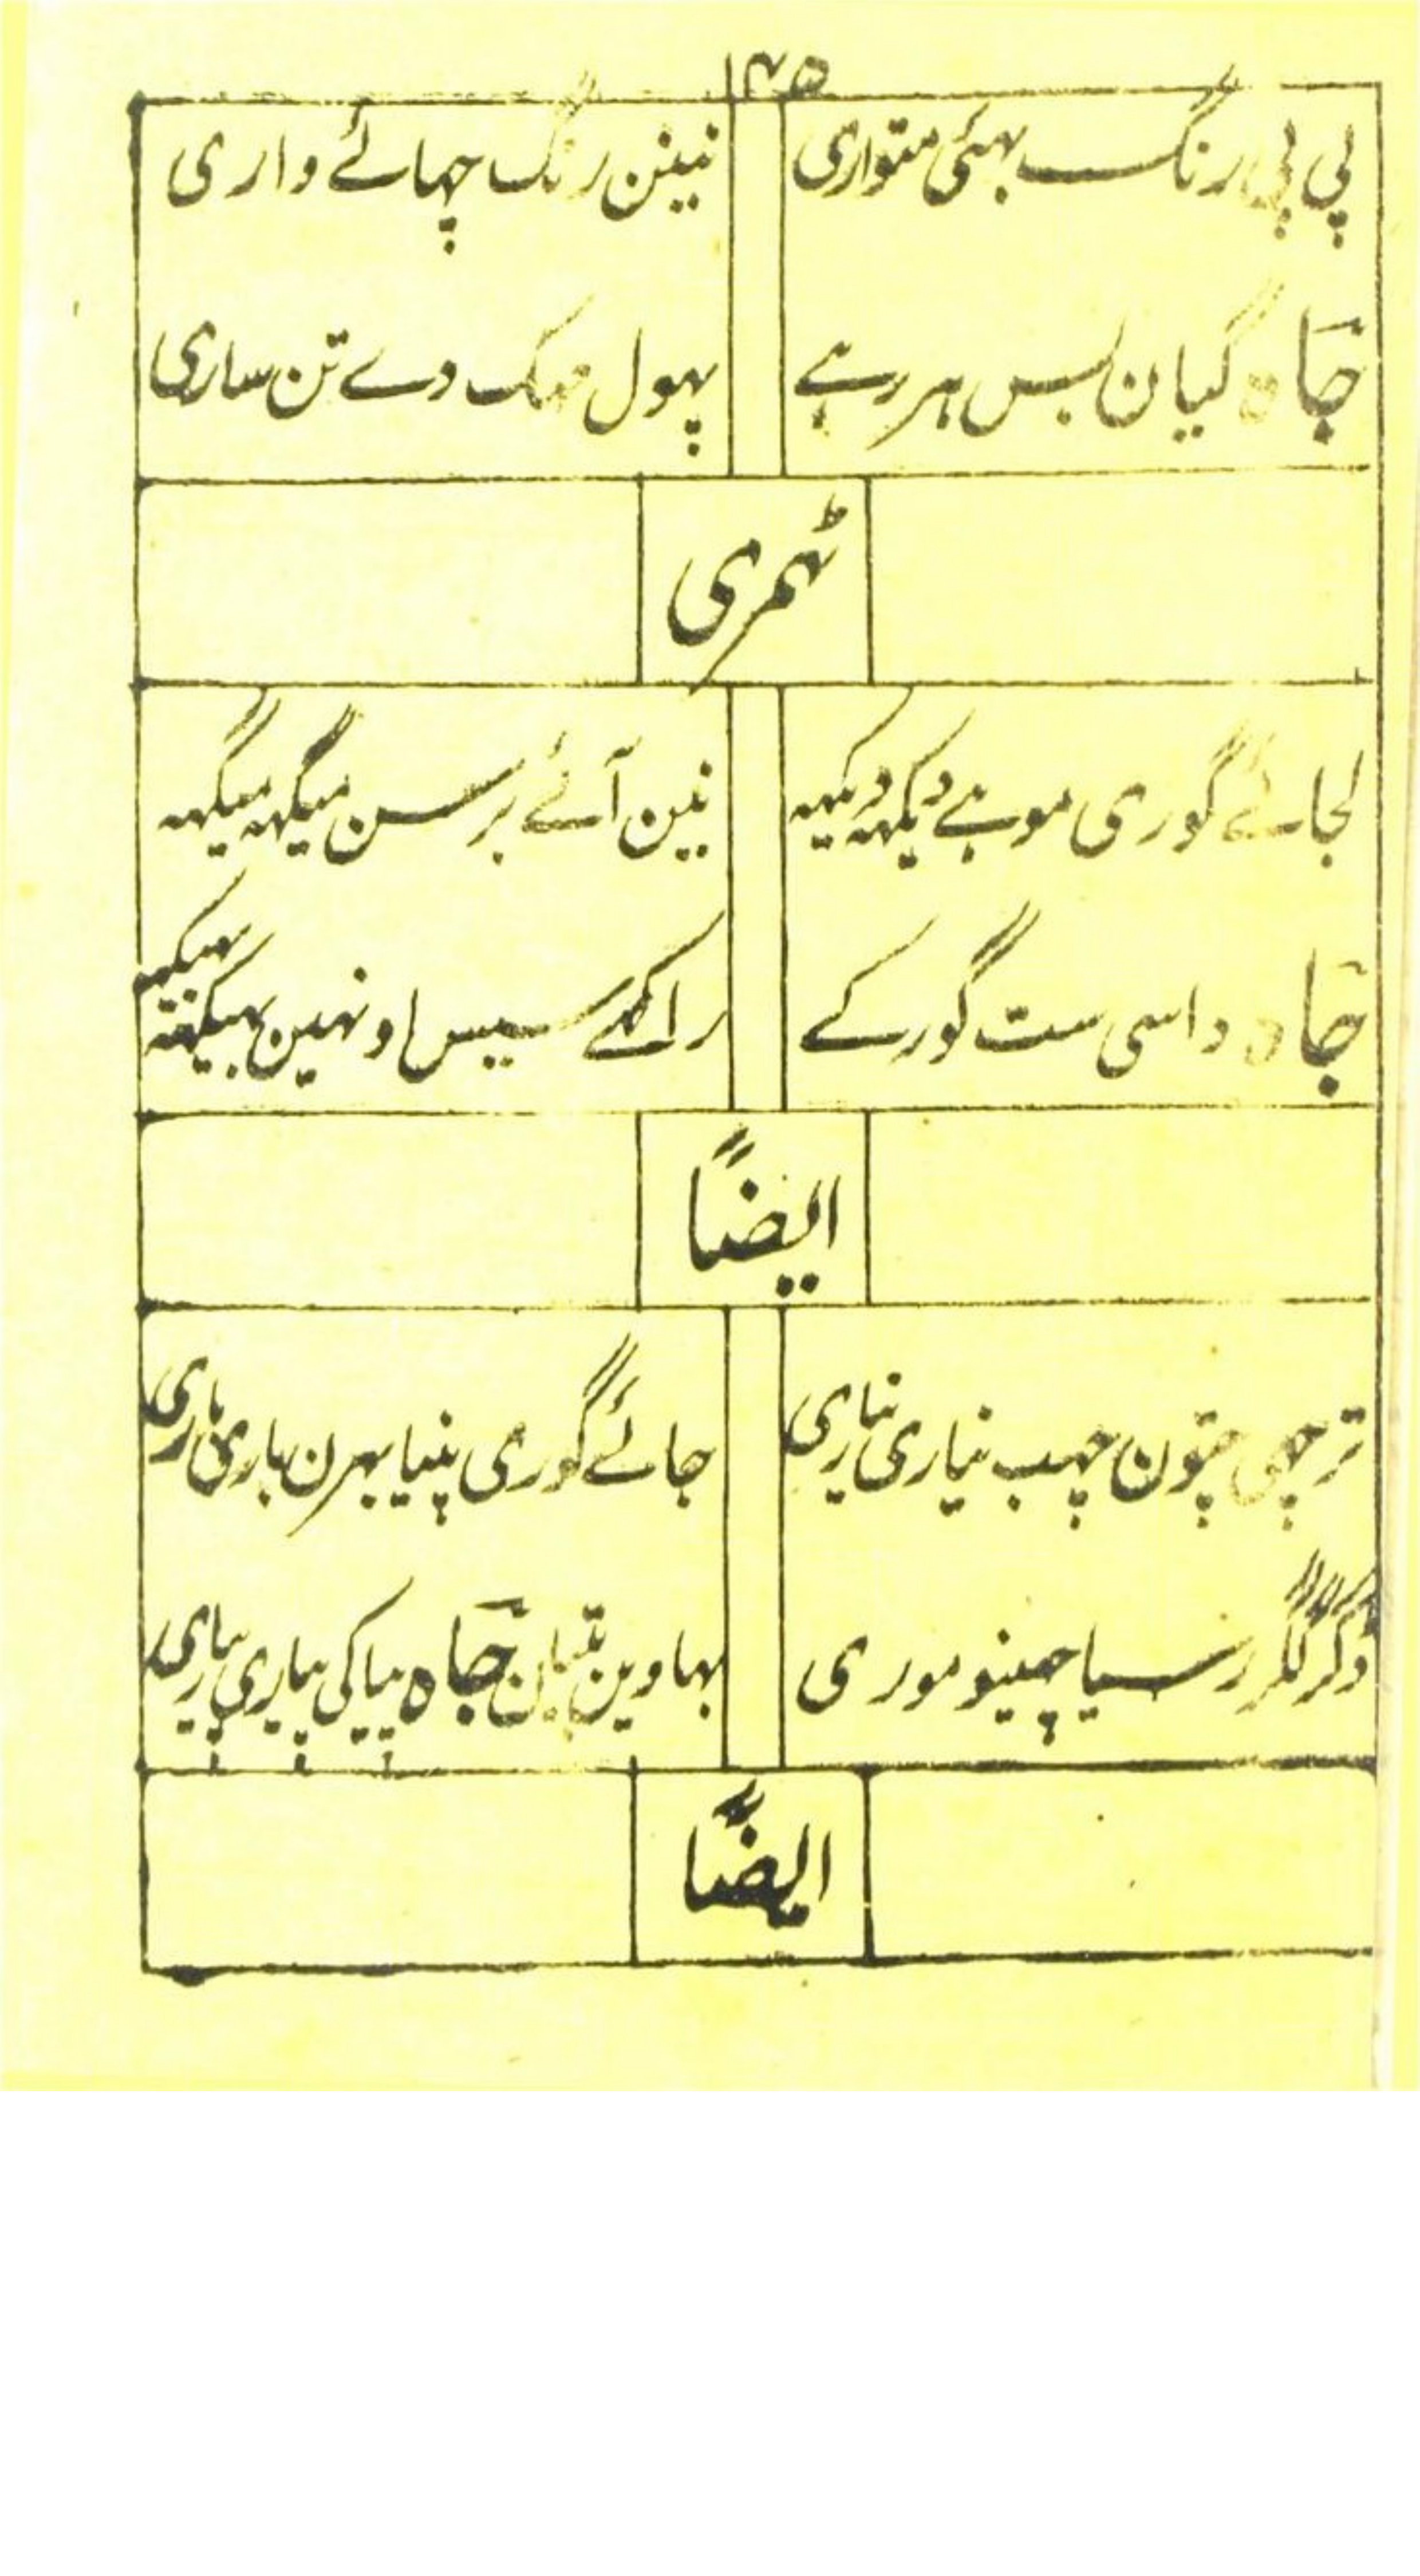 ۱۴۵
پی پی رنگ بہئی متواری
نینن رنگ چہائے واری
جاہ گیان بس ہر رہے
پہول مہک دے تن ساری
ٹہمری
لجائے گوری موہے دیکہہ دیکہہ
نین آئے برسن میگہہ میگہہ
جاہ داسی ست گور کے
راکھے سیس اونہین بہیکہہ بہیکہہ
ایضاً
ترچہی چتون چہب نیاری نیاری
جائے گوری پنیا بہرن باری باری
ڈگر لنگر رسیا چہینو موری
بہاوین بتیان جاہ پیا کی پیاری پیاری
ایضاً